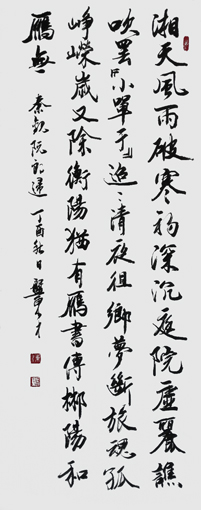 湘天風雨破寒初深沉庭院虛麗譙
吹罷『小單于』迢〻清夜徂鄉夢斷旅魂孤
崢嶸歲又除衡陽猶有鴈書傳郴陽和
鴈無
秦觀阮郎歸 丁酉秋日